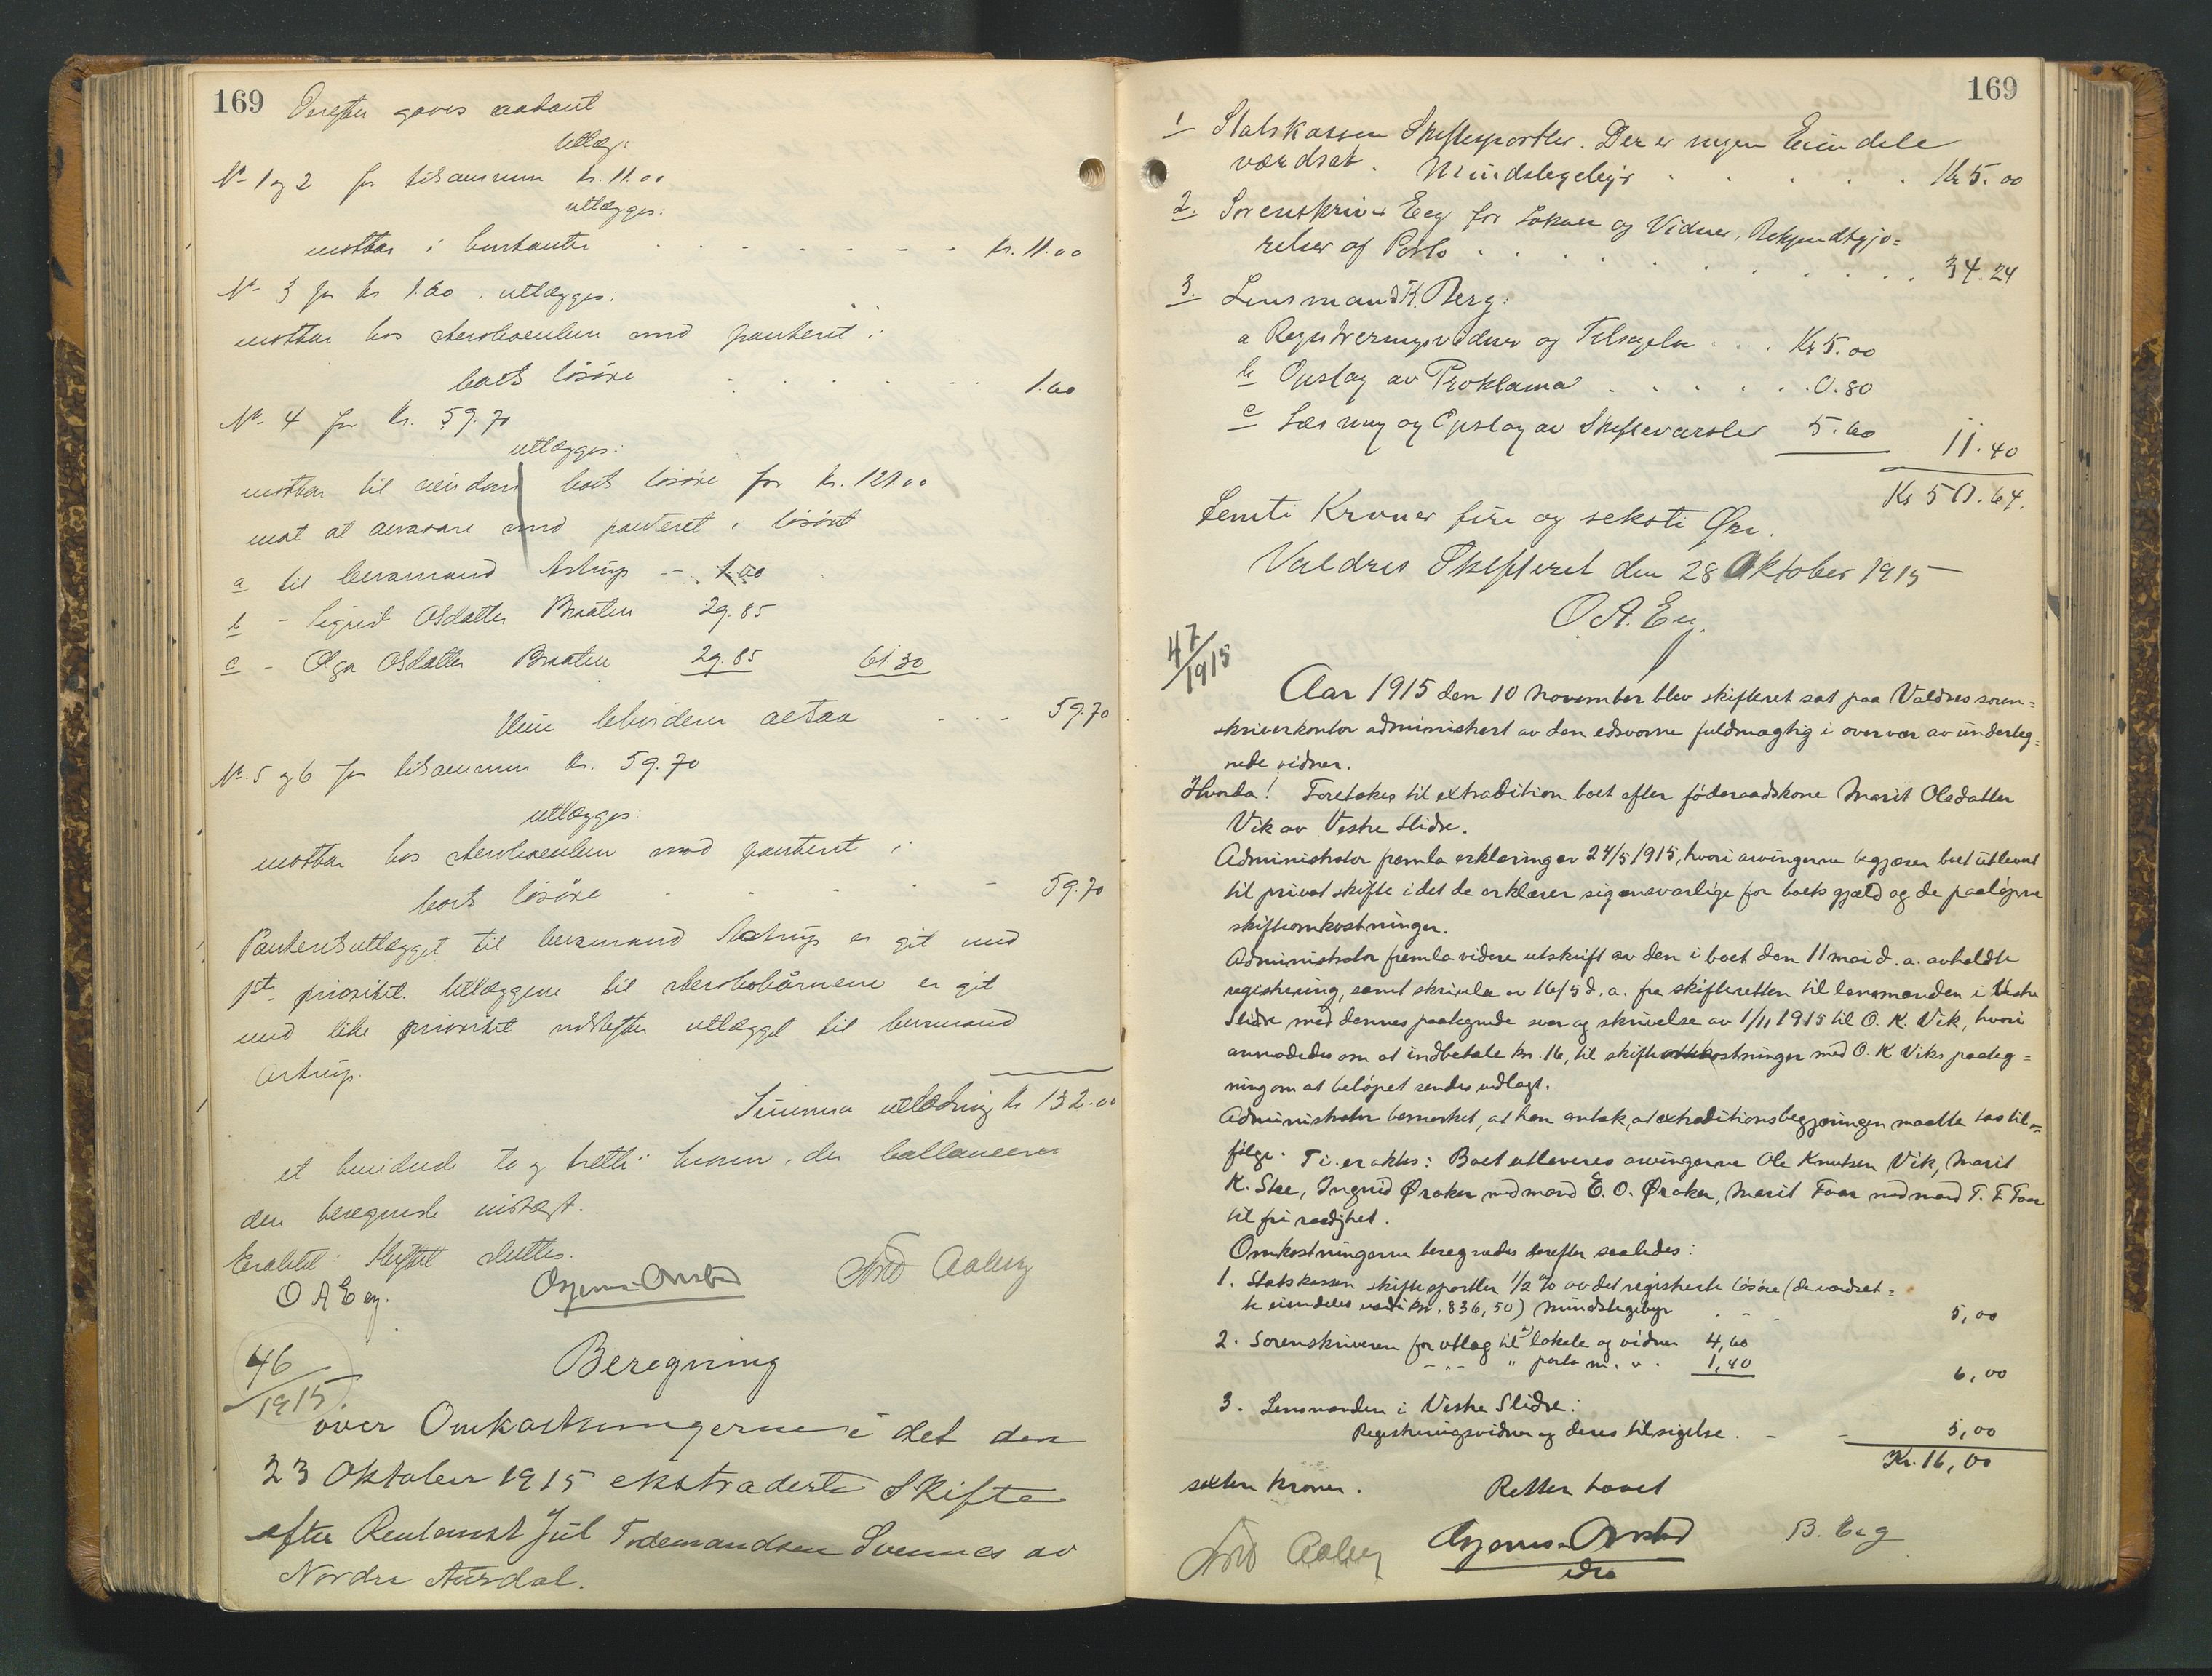 169
Derefter gaves saadant
utlæg:
No 1 og 2 for tilsammen kr. 11.00
utlægges:
mottar i kontanter . . . . . . . kr. 11.00
No 3 for kr 1.60. utlægges:
mottar hos med panteret i
boets løsøre . . . . . 1.60
No 4 for kr. 59.70
utlægges:
mottar til eiendom boets løsøre for kr. 121.00
mot at med panteret i løsøret
a til lensmand Astrup - 1.60
b - Sigrid Olsdatter Braaten 29.85
c - Olga Olsdatter Braaten 29.85 61.30
beholder altsaa - - - 59.70
No. 5 og 6 for tilsammen kr. 59.70
utlægges:
mottar hos med panteret i
boets løsøre . . . - 59.70
Panteretsutlægget til lensmand Astrup er git med
1ste prioritet. Utlæggene til er git
med like prioritet næstefter utlægget til lensmand
Astrup.
Summa utlodning kr 132.00
et hundrede to og tretti kroner, der ballancerer
den beregnede indtægt.
Eraktet: Skiftet sluttes.
O A Eeg.
46/1915
Beregning
over Omkostningerne i det den
23 Oktober 1915 ekstraderte Skifte
efter Rentenist Jul Todemandsen Svennes av
Nordre Aurdal.
169
1 Statskassen Skiftesportler. Der er ingen Eiendele
værdsat. Mindstegebyr . . . . . Kr 5.00
2. Sorenskriver Eeg for Lokale og Vidner, Bekjendtgjø=
relser og Porto . . . . . . . . 34.24
3. Lensmand K. Berg:
a Registreringsvidner og Tilsigelse . . . Kr 5.00
b Opslag av Proklama . . . . . . 0.80
c Læsning og Opslag av Skiftevarsler 5.60 11.40
Kr 50.64.
Femti Kroner fire og seksti Øre.
Valdres Skifteret den 28 Oktober 1915
O. A. Eeg.
47/1915
Aar 1915 den 10 november blev skifteret sat paa Valdres soren=
skriverkontor administrert av den edsvorne fuldmægtig i overvær av underteg=
nede vidner.
Hvorda! Foretokes til extradition boet efter føderaadskone Marit Olsdatter
Vik av Vestre Slidre.
Administrator fremla erklæring av 24/5 1915, hvori arvingerne begjærer boet utlevert
til privat skifte idet de erklærer sig ansvarlige for boets gjæld og de paaløpne
skifteomkostninger.
Administrator fremla videre utskrift av den i boet den 11 mai d. a. avholdte
registrering, samt skrivelse av 16/5 d. a. fra skifteretten til lensmanden i Vestre
Slidre med dennes paategnede svar og skrivelse av 1/11 1915 til O. K. Vik, hvori
anmodedes om at indbetale kr. 16, til skifteomkostninger med O. K Viks paateg=
ning om at beløpet sendes vedlagt.
Administrator bemerket, at han antok, at extraditionsbegjæringen maatte tas til=
følge. Ti eraktes: Boet utleveres arvingerne Ole Knutsen Vik, Marit
K. Stee, Ingrid Øraker med mand E. O. Øraker, Marit Foss med mand T. T. Foss
til fri raadighet.
Omkostningerne beregnedes derefter saaledes:
1. Statskassen skiftesportler 1/2 % av det registrerte løsøre (de værdsat=
te eiendeles værdi kr. 836,50) mindstegebyr . . . 5,00
2. Sorenskriveren for utlæg til lokale og vidner 4,60
- " - " porto m. v. 1,40 6,00
3. Lensmanden i Vestre Slidre:
Registreringsvidner og deres tilsigelse . - - 5,00
Kr. 16,00
seksten kroner.
Retten hævet
B. Eeg